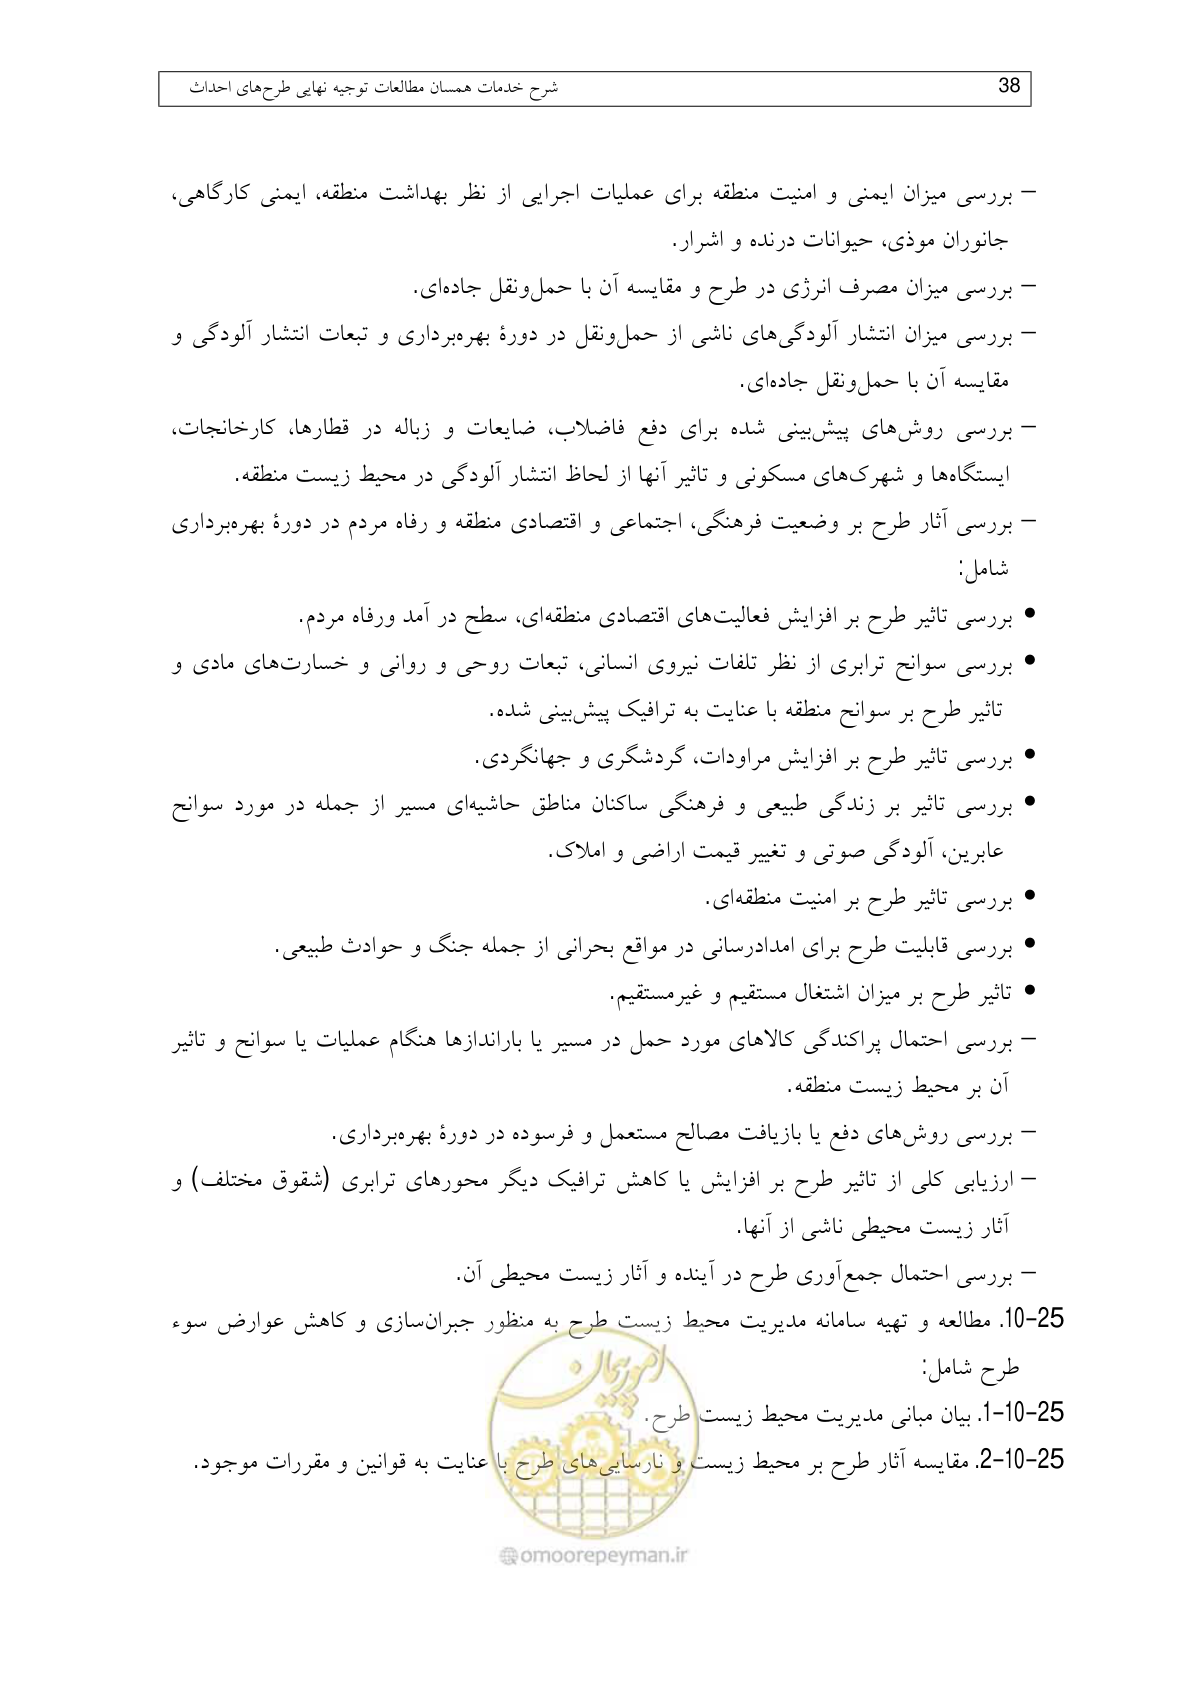 38 شرح خدمات همسان مطالعات توجیه نهایی طرح‌های احداث
– بررسی میزان ایمنی و امنیت منطقه برای عملیات اجرایی از نظر بهداشت منطقه، ایمنی کارگاهی،
جانوران موذی، حیوانات درنده و اشرار.
– بررسی میزان مصرف انرژی در طرح و مقایسه آن با حمل‌ونقل جاده‌ای.
– بررسی میزان انتشار آلودگی‌های ناشی از حمل‌ونقل در دورۀ بهره‌برداری و تبعات انتشار آلودگی و
مقایسه آن با حمل‌ونقل جاده‌ای.
– بررسی روش‌های پیش‌بینی شده برای دفع فاضلاب، ضایعات و زباله در قطارها، کارخانجات،
ایستگاه‌ها و شهرک‌های مسکونی و تاثیر آنها از لحاظ انتشار آلودگی در محیط زیست منطقه.
– بررسی آثار طرح بر وضعیت فرهنگی، اجتماعی و اقتصادی منطقه و رفاه مردم در دورۀ بهره‌برداری
شامل:
• بررسی تاثیر طرح بر افزایش فعالیت‌های اقتصادی منطقه‌ای، سطح در آمد ورفاه مردم.
• بررسی سوانح ترابری از نظر تلفات نیروی انسانی، تبعات روحی و روانی و خسارت‌های مادی و
تاثیر طرح بر سوانح منطقه با عنایت به ترافیک پیش‌بینی شده.
• بررسی تاثیر طرح بر افزایش مراودات، گردشگری و جهانگردی.
• بررسی تاثیر بر زندگی طبیعی و فرهنگی ساکنان مناطق حاشیه‌ای مسیر از جمله در مورد سوانح
عابرین، آلودگی صوتی و تغییر قیمت اراضی و املاک.
• بررسی تاثیر طرح بر امنیت منطقه‌ای.
• بررسی قابلیت طرح برای امدادرسانی در مواقع بحرانی از جمله جنگ و حوادث طبیعی.
• تاثیر طرح بر میزان اشتغال مستقیم و غیرمستقیم.
– بررسی احتمال پراکندگی کالاهای مورد حمل در مسیر یا باراندازها هنگام عملیات یا سوانح و تاثیر
آن بر محیط زیست منطقه.
– بررسی روش‌های دفع یا بازیافت مصالح مستعمل و فرسوده در دورۀ بهره‌برداری.
– ارزیابی کلی از تاثیر طرح بر افزایش یا کاهش ترافیک دیگر محورهای ترابری (شقوق مختلف) و
آثار زیست محیطی ناشی از آنها.
– بررسی احتمال جمع‌آوری طرح در آینده و آثار زیست محیطی آن.
10-25. مطالعه و تهیه سامانه مدیریت محیط زیست طرح به منظور جبران‌سازی و کاهش عوارض سوء
طرح شامل:
1-10-25. بیان مبانی مدیریت محیط زیست طرح.
2-10-25. مقایسه آثار طرح بر محیط زیست و نارسایی‌های طرح با عنایت به قوانین و مقررات موجود.
امور پیمان
omoorepeyman.ir